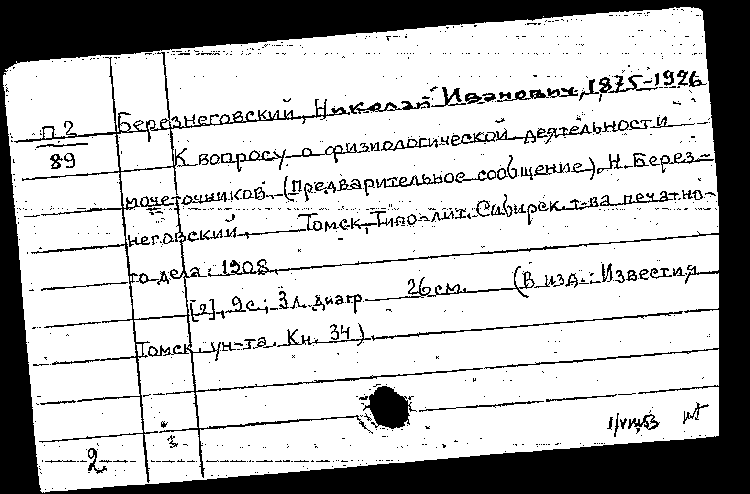 П 2
89
Березнеговский, Николай Иванович, 1875-1926
К вопросу о физиологической деятельности
мочеточников. (Предварительное сообщение). Н. Берез-
неговский. Томск, Типо-лит. Сибирск. т-ва печатно-
го дела. 1908.
[2], 9 с.; 3 л. диагр. 26 см. (В изд.: Известия
Томск. ун-та. Кн. 34).
3
2.
1/VIII 53